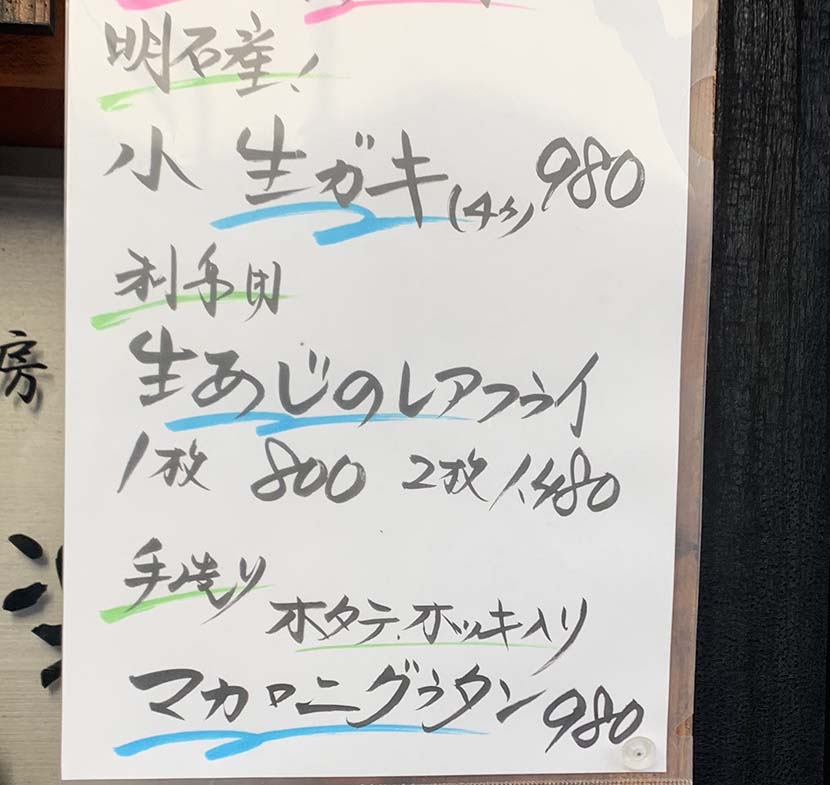 明石産!
小 生ガキ(4ヶ) 980
生あじのレアフライ
1枚 800 2枚 1,480
手造り
ホタテ.ホッキ入り
マカロニグラタン 980
房